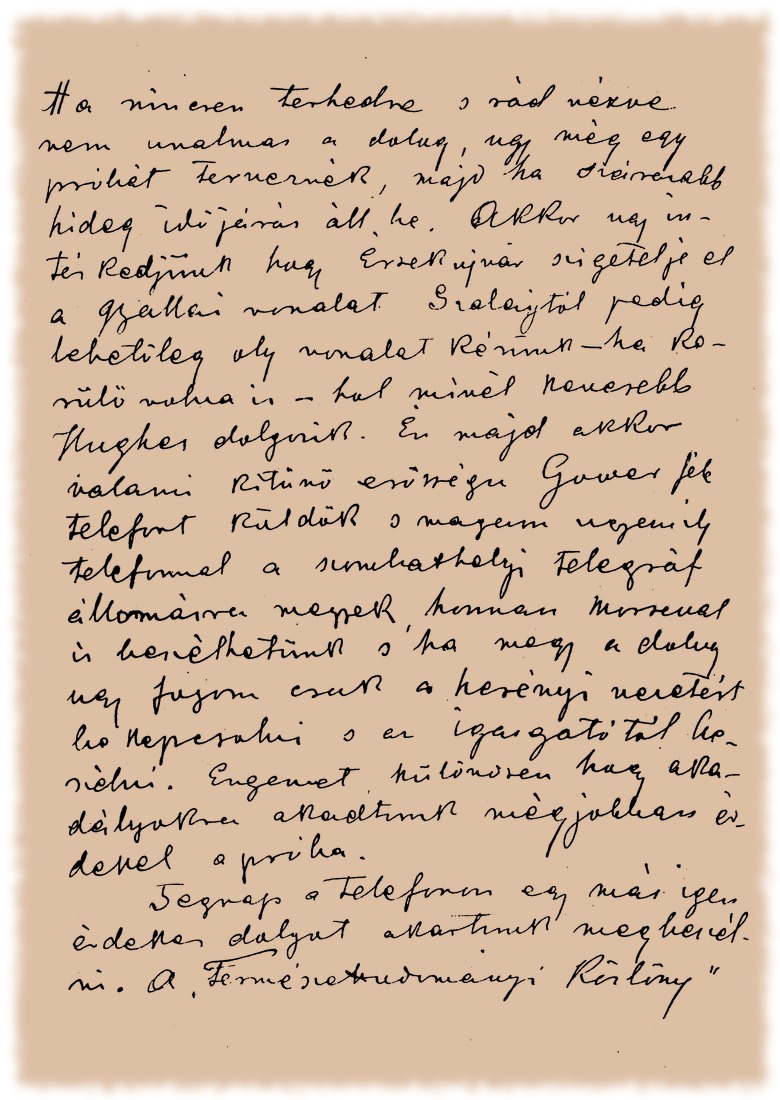 Ha nincsen terhedre s rád nézve
nem unalmas a dolog, ugy még egy
próbát terveznék, majd ha szárazabb
hideg időjárás áll be. Akkor ugy in-
tézkedjünk hogy Érsekujvár szigetelje el
a gyallai vonalat Szalaytól pedig
lehetőleg oly vonalat kérünk – ha ke-
rülő volna is – hol minél kevesebb
Hughes dolgozik. Én majd akkor
valami kitünő erősségü Gower féle
telefont küldök s magam ugyanily
telefonnal a szombathelyi telegráf
állomásra megyek, honnan Morseval
is beszélhetünk s ha megy a dolog
ugy fogom csak a herényi vezetést
be kapcsolni s az igazgatótól be-
szélni. Engemet különösen hogy aka-
dályokra akadtunk mégjobban ér-
dekel a próba.
Tegnap a telefonon egy más igen
érdekes dolgot akartunk megbeszél-
ni. A „Természettudományi Közlöny"